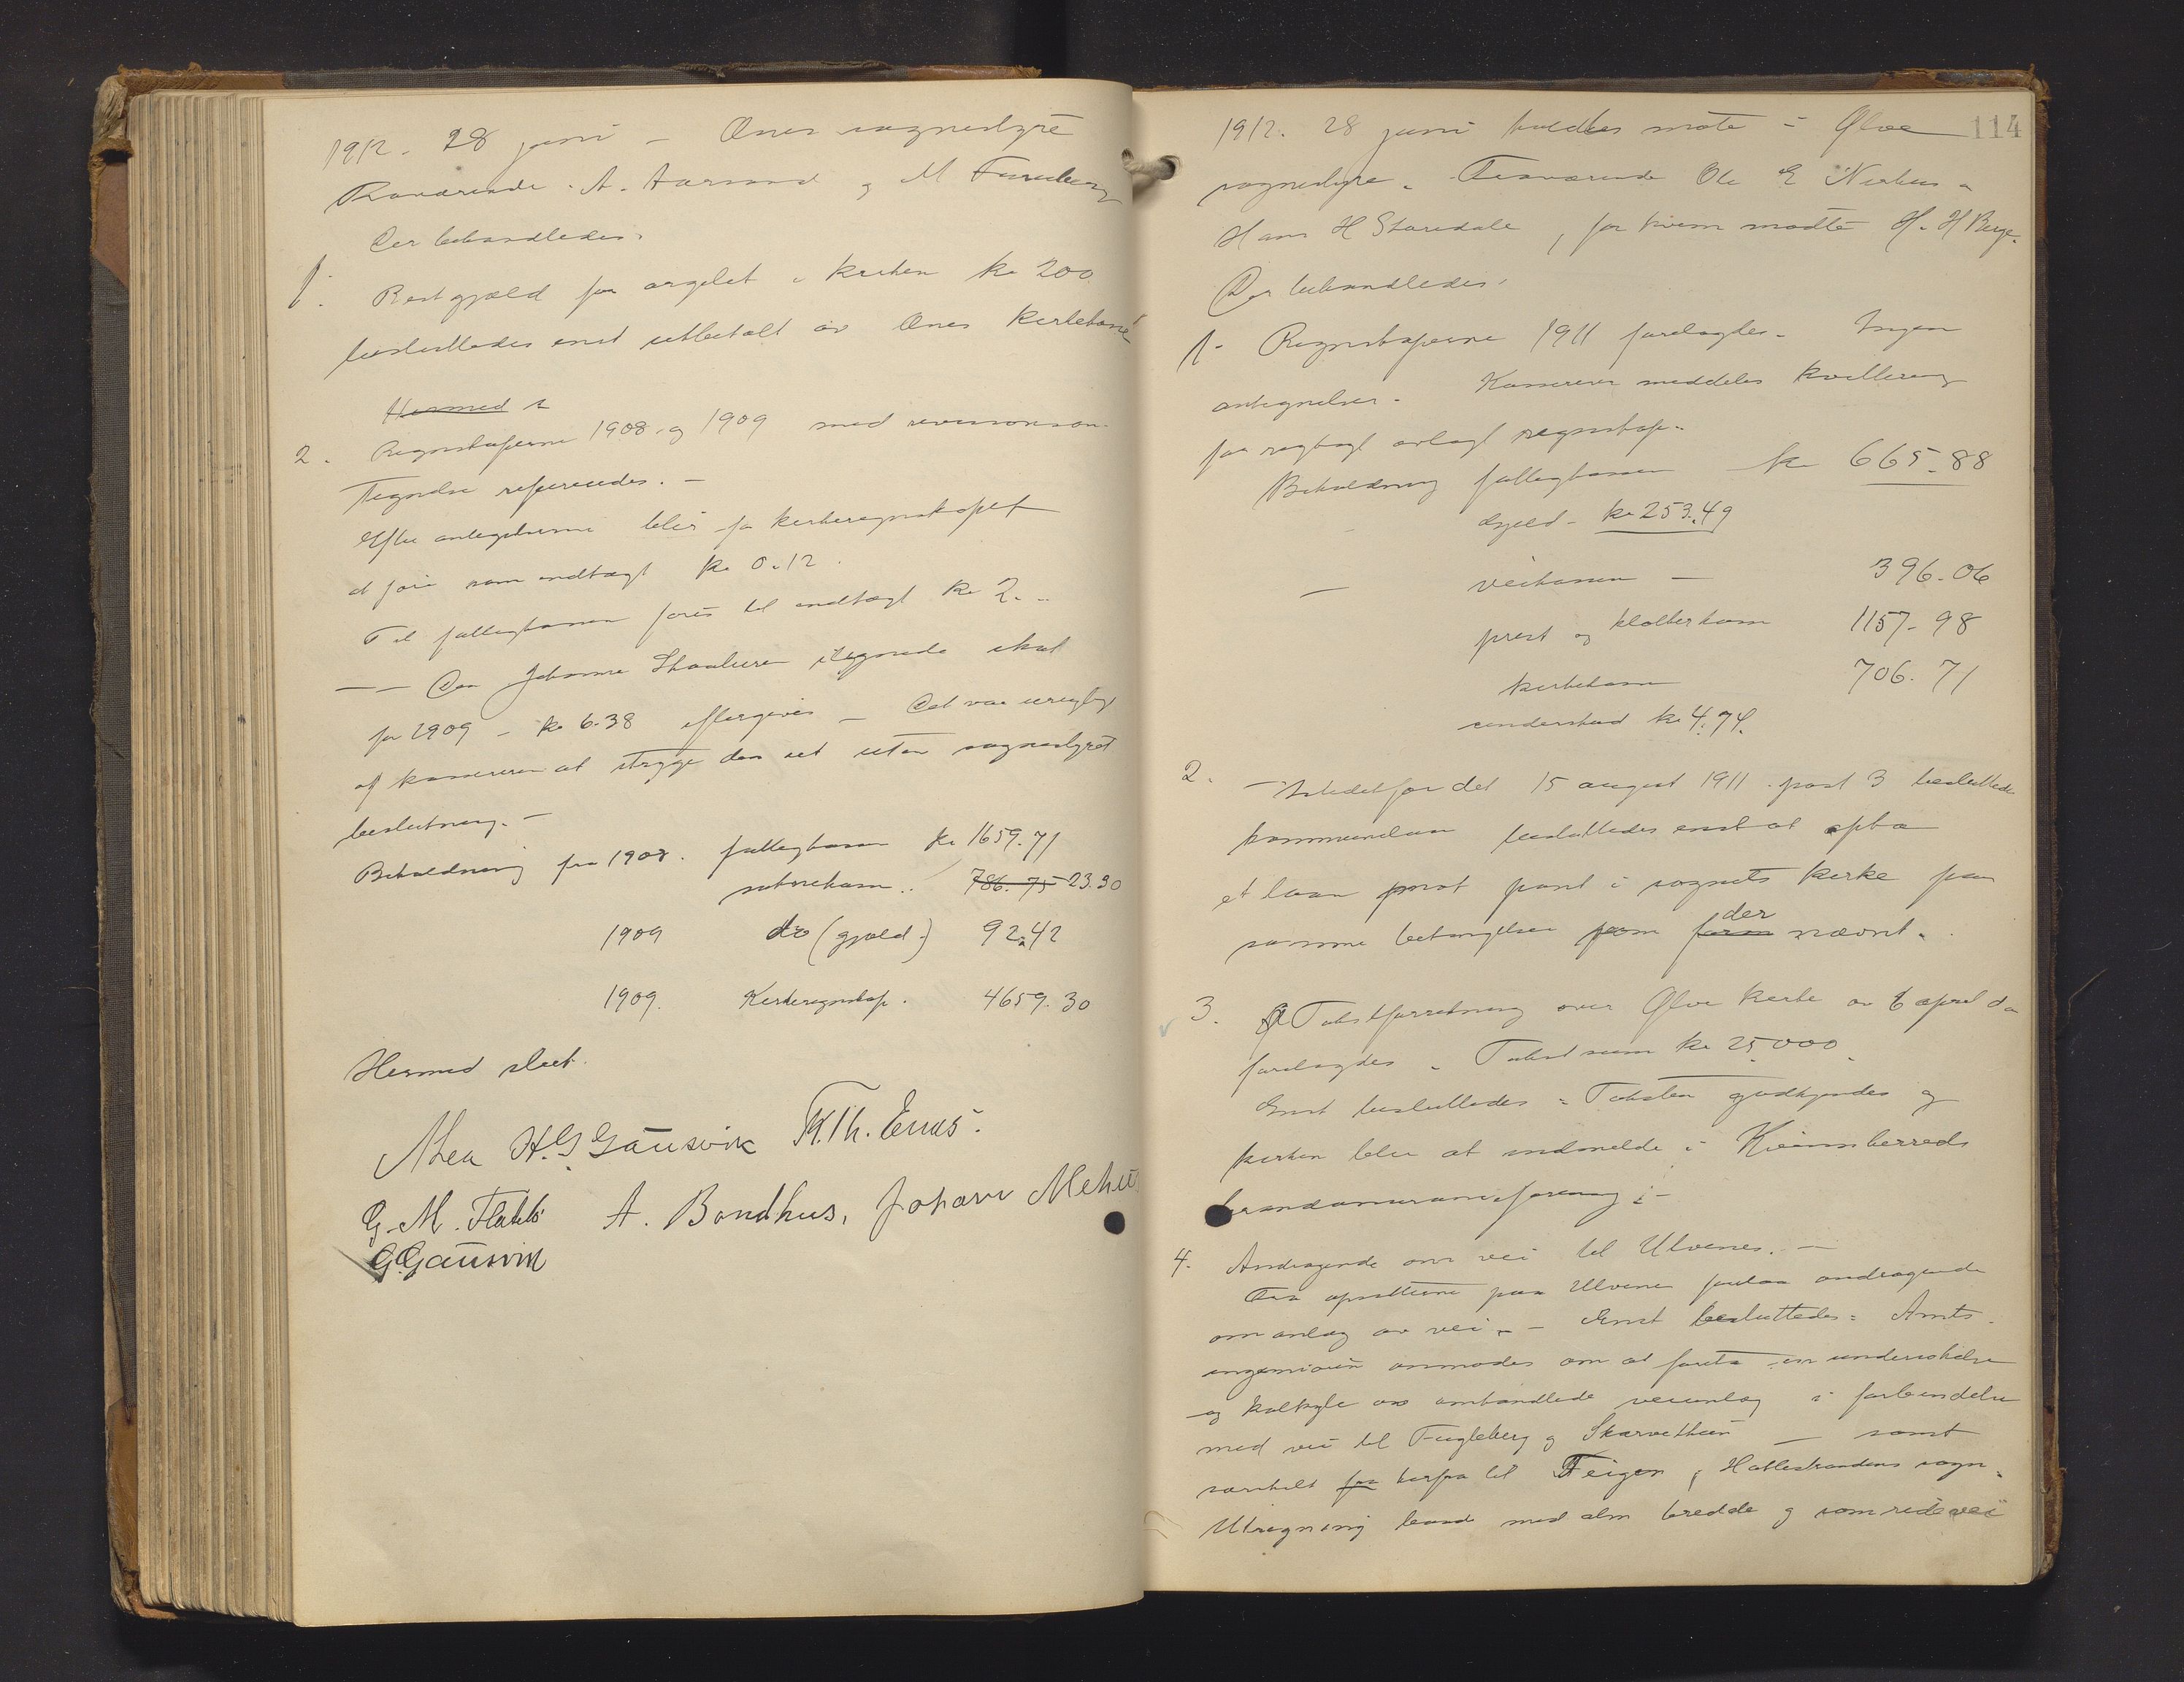 1912. 28 juni - Ænes sognestyre
Fraværende A. Aarsand og M Furuberg
Der behandledes.
1. Restgjæld for orgelet i kirken kr 200
besluttedes enst utbetalt av Ænes kirkekasse
Hermed s
2. Regnskaperne 1908 og 1909 med revisionsan-
tegnelse refereredes. -
Efter antegnelserne blir for kirkeregnskapet
at føre som indtægt kr 0.12.
Til fattigkassen føres til indtægt kr 2. -
- - Den Johanne Skaaluren ilignede skat
for 1909 - kr 6.38 eftergives - Det var uriktigt
af kassereren at stryge den ut uten sognestyrets
beslutning. -
Beholdning fra 1908. fattigkassen kr 1659.71
skolekassen .. 786.75 23.30
1909 do (gjæld -) 92.42
1909. Kirkeregnskap. 4659.30
Hermed slut.
Aden H. G Gausvik K.Th. Enæs.
G. M. Flatebø A. Bondhus, Johan Mehus
G. Gausvik
114
1912. 28 juni holdtes møte i Ølve
sognestyre. Fraværende Ole E Nerhus -
Hans H Staredale, for hvem mødte H. H Berge.
Der behandledes.
1. Regnskaperne 1911 forelagdes. Ingen
antegnelser. Kassereren meddeles kvittering
for rigtigt avlagt regnskap.
Beholdning fattigkassen kr 665.88
gjæld - kr 253.49
- veikassen - 396.06
prest og klokkerkasse 1157.98
kirkekasse 706.71
underskud kr 4.74.
2. - Istedetfor det 15 august 1911 post 3 besluttede
kommunelaan besluttedes enst at opta
et laan mot pant i sognets kirke paa
samme betingelser som foran der nævnt.
3. Takstforretning over Ølve kirke av 6 april da
forelagdes. Takstsum kr 25.000.
Enst besluttedes: Taksten godkjendes og
kirken blir at indmelde i Kvinnherreds
brandassuranceforening. -
4. Andragende om vei til Ulvenes. -
Fra opsitterne paa Ulvenes forelaa andragende
om anlæg av vei. - Enst besluttedes: Amts-
ingeniøren anmodes om at foreta en undersøkelse
og kalkyle av omhandlede veianlæg i forbindelse
med vei til Fugleberg og Skarvetthun - samt
særskilt fra herfra til Teigen, Hatlestrandens sogn.
Utregning baade med alm bredde og som ridevei